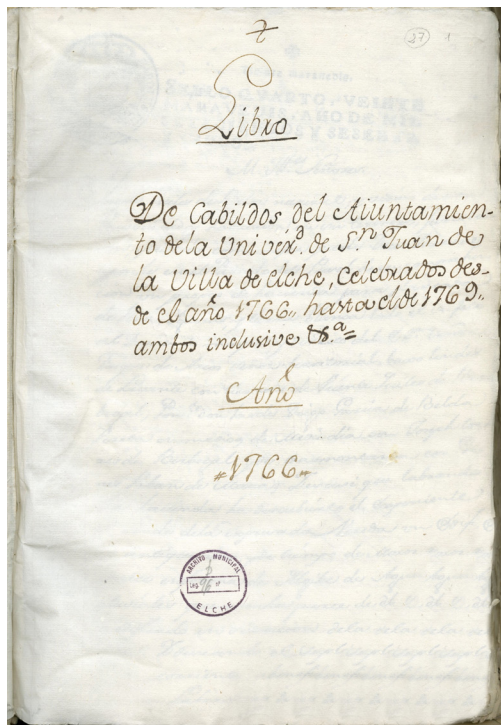 27 1
Libro
De Cabildos del Aiuntamien-
to de la Univer.d de S.n Juan de
la Villa de elche, Celebrados des-
de el año 1766,, hasta el de 1769,,
ambos inclusive &.a=
Año
1766
ARCHIVO MUNICIPAL
Leg.
ELCHE